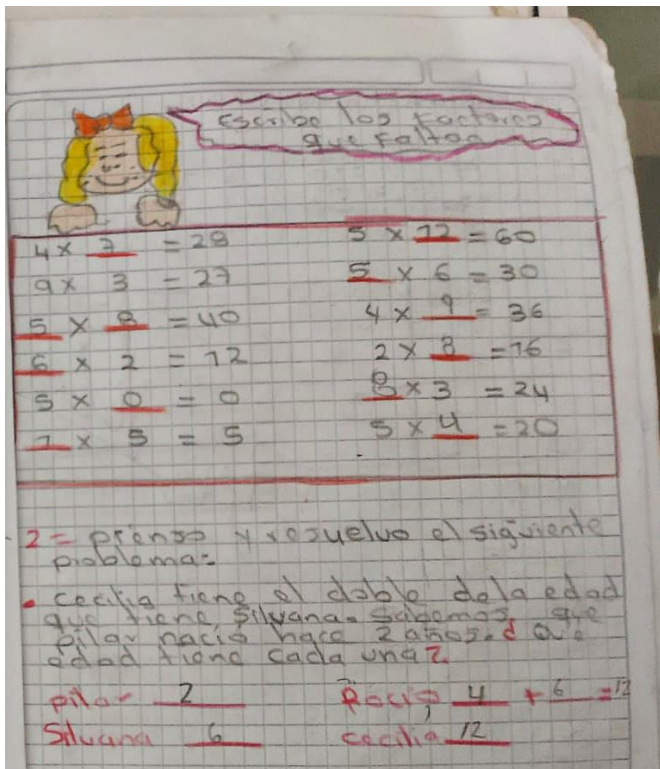 Escribo los factores
que faltan
4 x 7 = 28
9 x 3 = 27
5 x 8 = 40
6 x 2 = 12
5 x 0 = 0
1 x 5 = 5
5 x 12 = 60
5 x 6 = 30
4 x 9 = 36
2 x 8 = 16
8 x 3 = 24
5 x 4 = 20
2= pienso y resuelvo el siguiente
problema:
• cecilia tiene el doble dela edad
que tiene, Silvana. Sabemos que
pilar nacio hace 2 años. ¿ que
edad tiene cada una?
pilar 2 Rocio 4 + 6 = 12
Silvana 6 cecilia 12